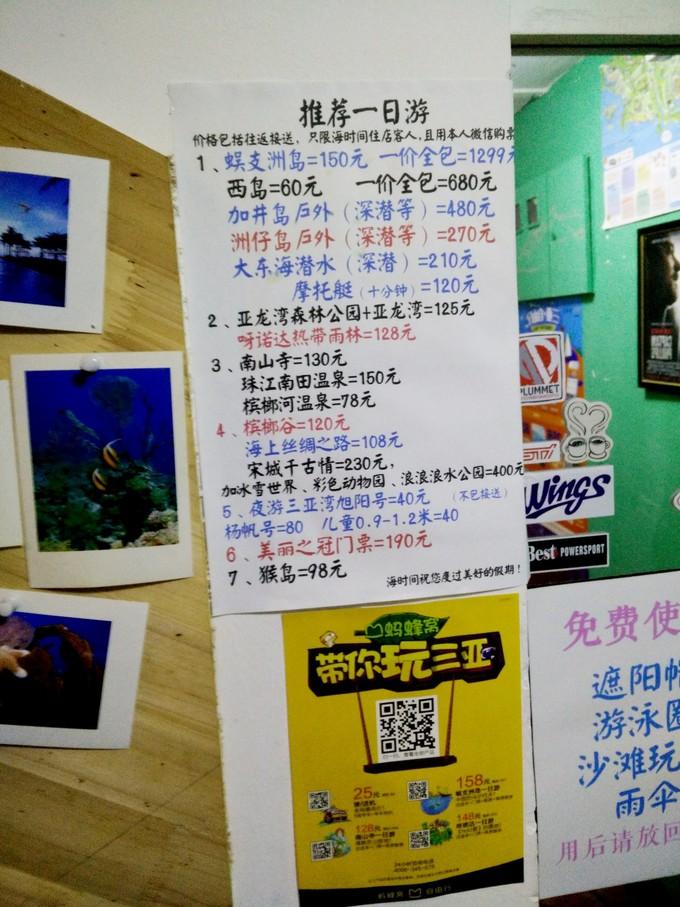 推荐一日游
价格包括往返接送，只限海时间住店客人，且用本人微信购票
1、蜈支洲岛=150元 一价全包=1299元
西岛=60元 一价全包=680元
加井岛户外（深潜等）=480元
洲仔岛户外（深潜等）=270元
大东海潜水（深潜）=210元
摩托艇（十分钟）=120元
2、亚龙湾森林公园+亚龙湾=125元
呀诺达热带雨林=128元
3、南山寺=130元
珠江南田温泉=150元
槟榔河温泉=78元
4、槟榔谷=120元
海上丝绸之路=108元
宋城千古情=230元，
加冰雪世界、彩色动物园、浪浪浪水公园=400元
5、夜游三亚湾旭阳号=40元 （不包接送）
杨帆号=80 儿童0.9-1.2米=40
6、美丽之冠门票=190元
7、猴岛=98元
海时间祝您度过美好的假期！
蚂蜂窝
带你玩三亚
25元
158元
128元
148元
蚂蜂窝 自由行
PLUMMET
STI
Wings
Best POWERSPORT
免费使
遮阳帽
游泳圈
沙滩玩
雨伞
用后请放回